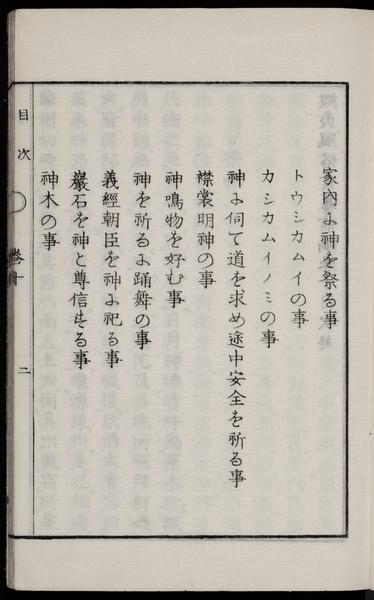 家內に神を祭る事
トウシカムイの事
カシカムイノミの事
神に伺て道を求め途中安全を祈る事
襟裳明神の事
神鳴物を好む事
神を祈るに踊舞の事
義經朝臣を神に祀る事
巖石を神と尊信する事
神木の事
目次
卷十
二